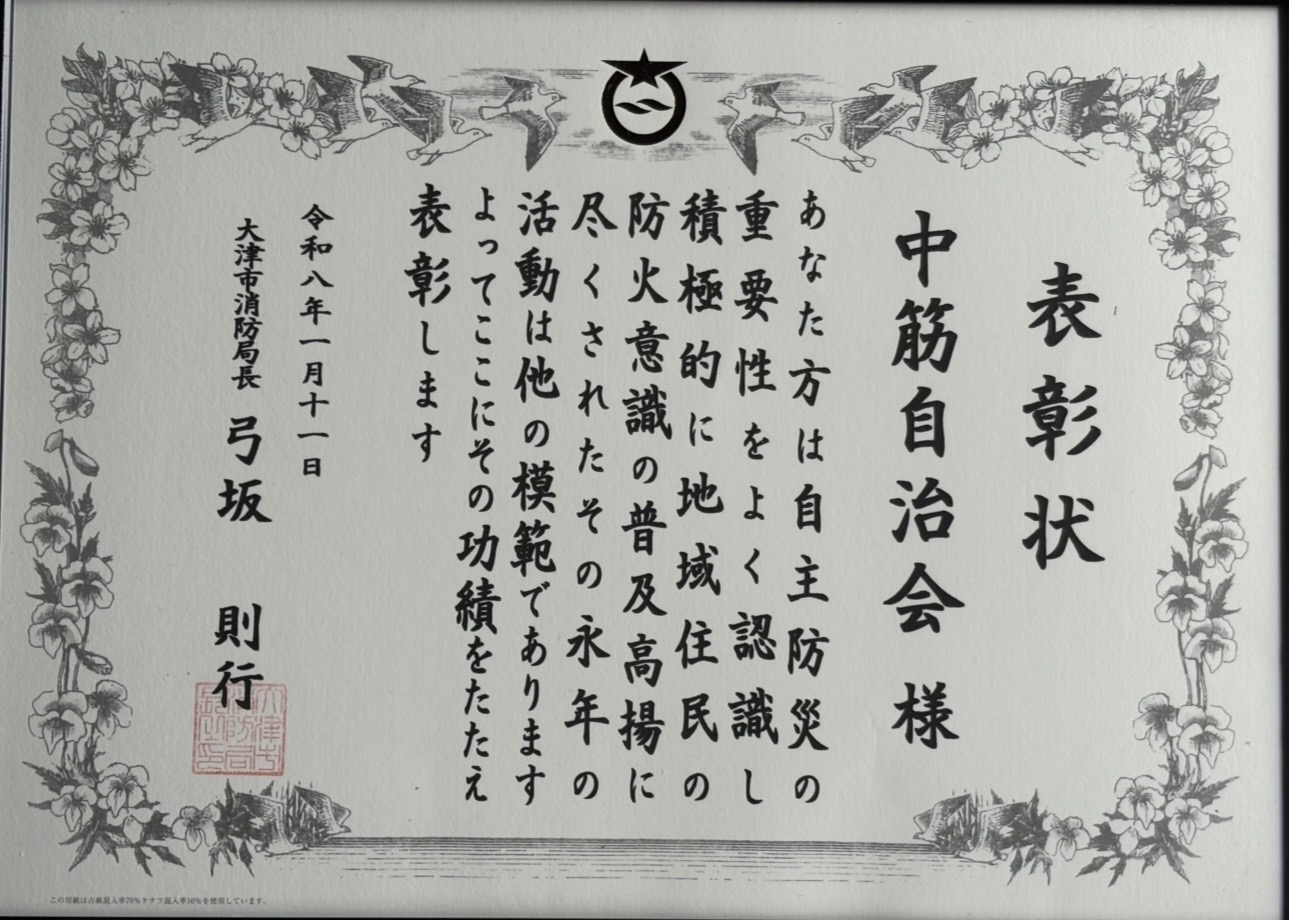 表彰状
中筋自治会 様
あなた方は自主防災の
重要性をよく認識し
積極的に地域住民の
防火意識の普及高揚に
尽くされたその永年の
活動は他の模範であります
よってここにその功績をたたえ
表彰します
令和八年一月十一日
大津市消防局長 弓坂 則行
この用紙は古紙混入率70%ケナフ混入率10%を使用しています。